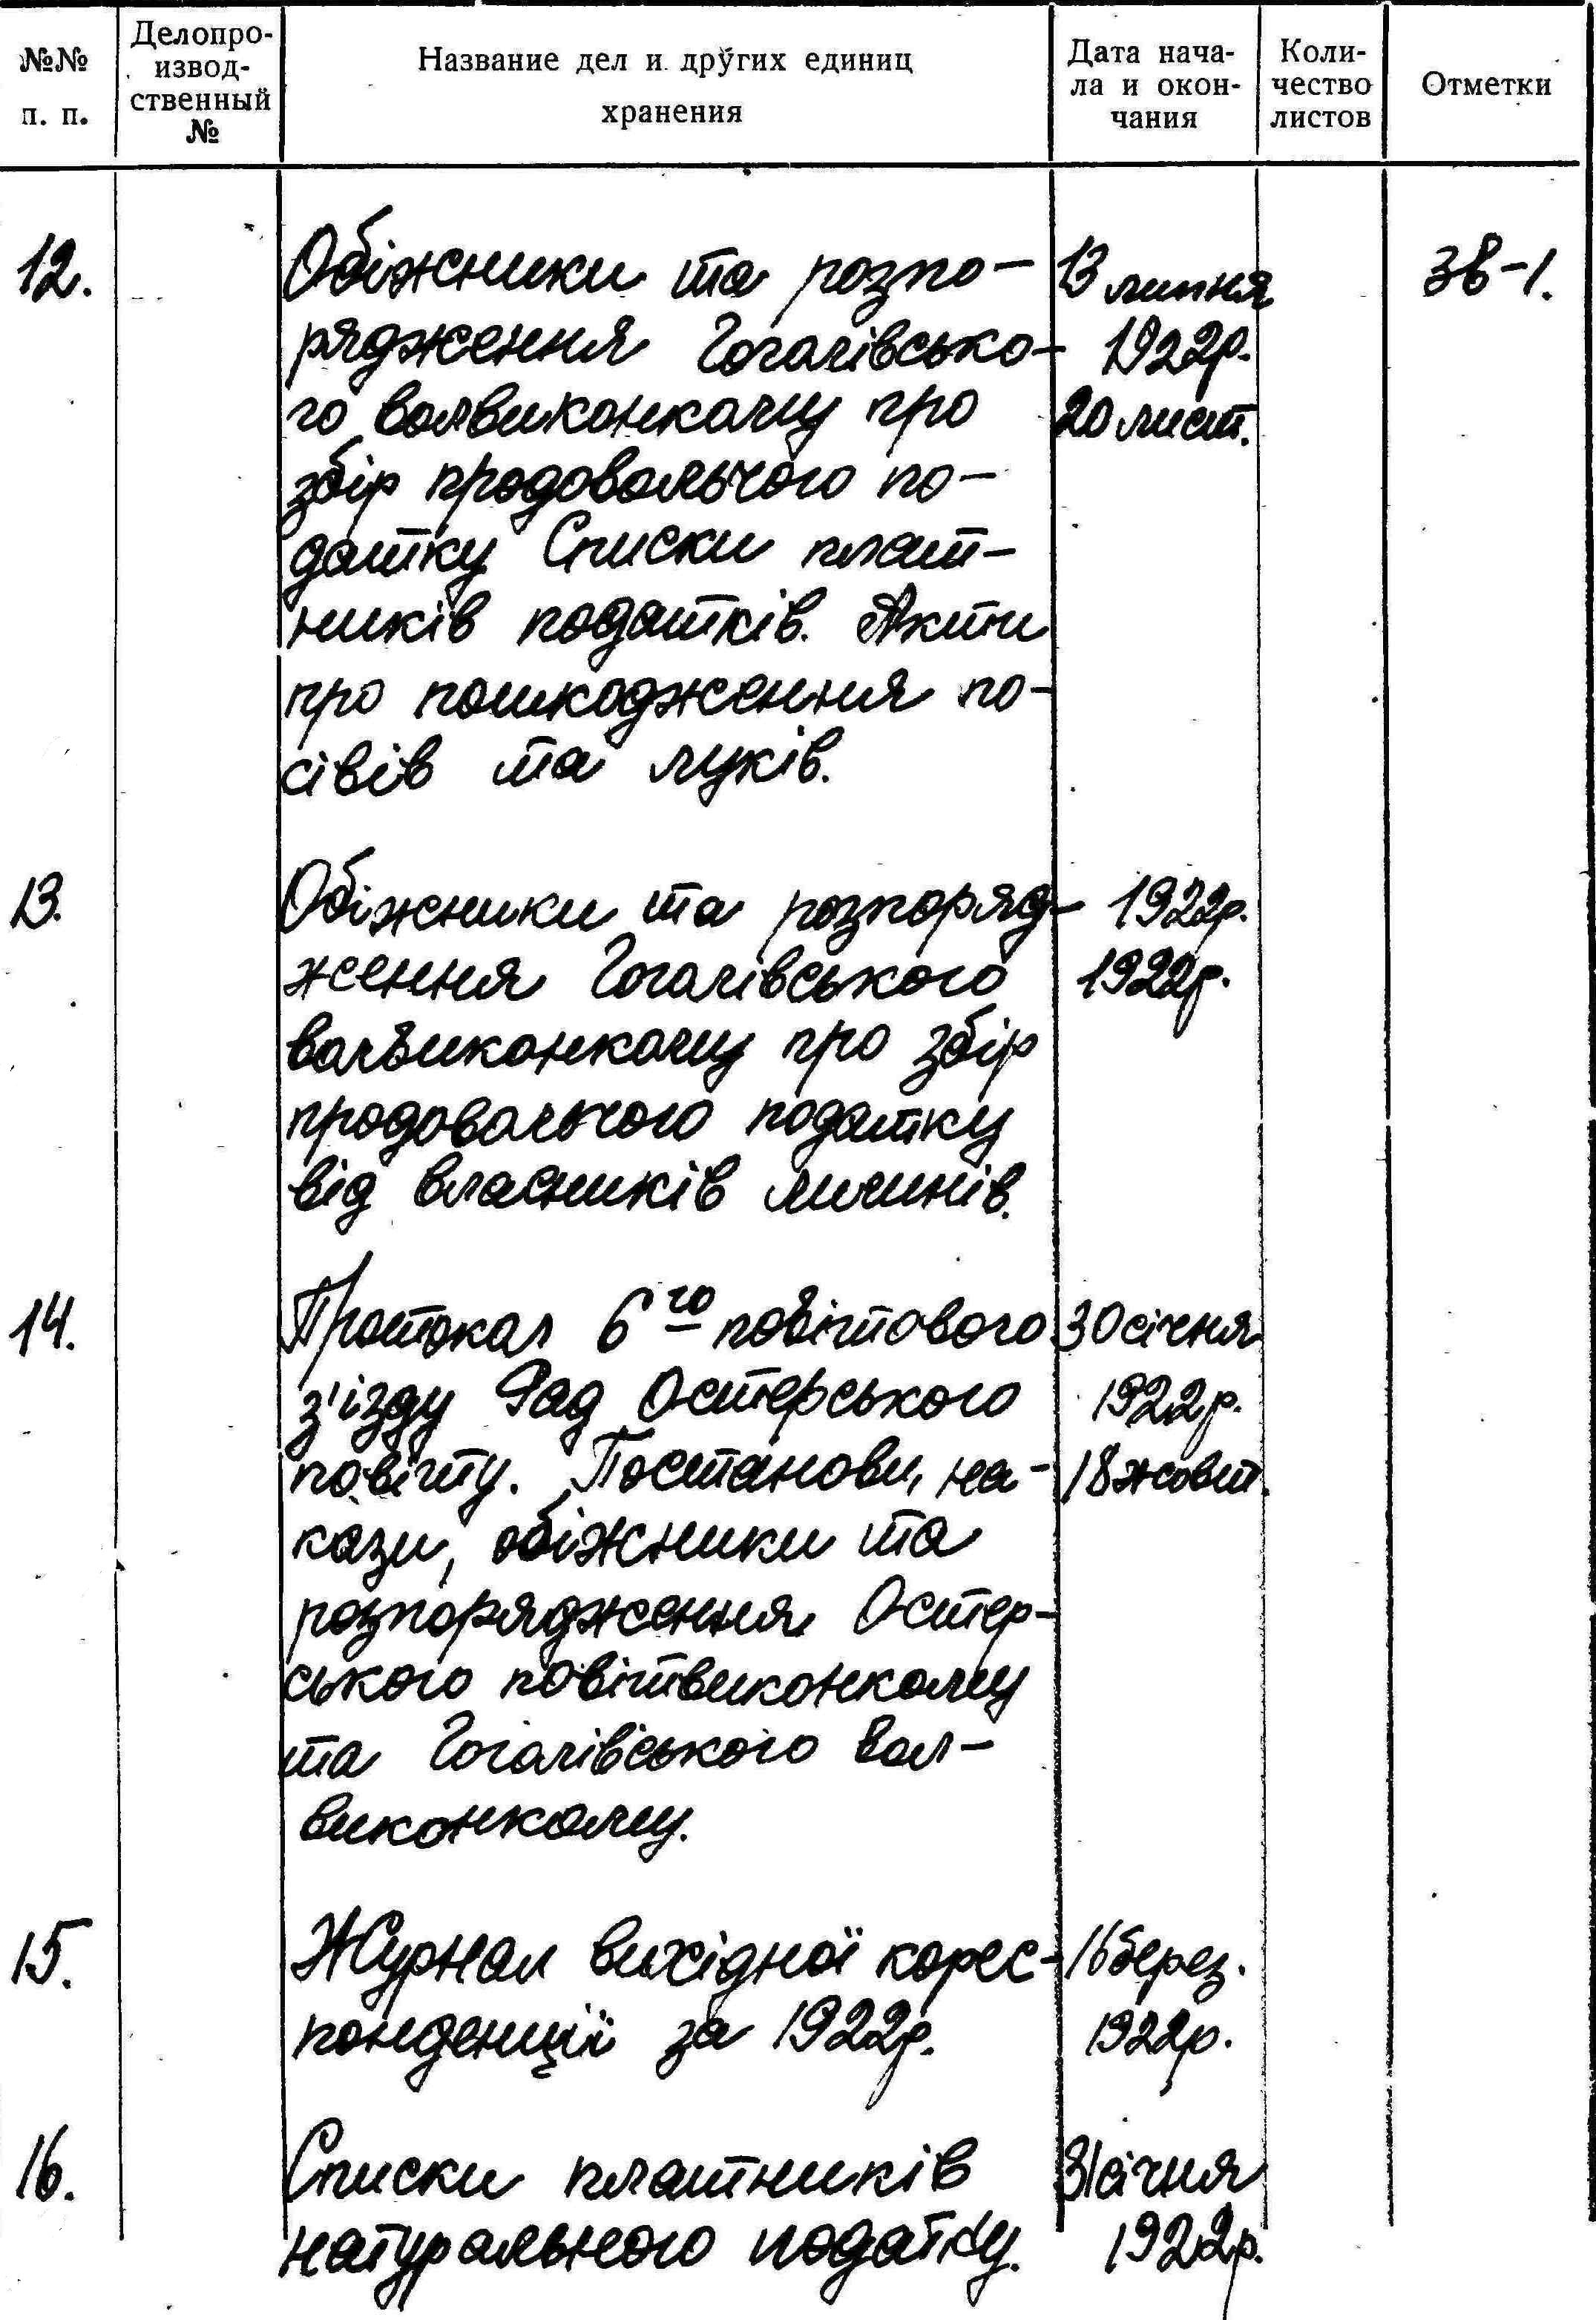 №№ п. п.
Делопро-
извод-
ственный
№
Название дел и других единиц
хранения
Дата нача-
ла и окон-
чания
Коли-
чество
листов
Отметки
12.
Обіжники та розпо-
рядження Гоголівсько-
го волвиконкому про
збір продовольчого по-
датку Списки плат-
ників податків. Акти
про пошкодження по-
сівів та луків.
13 липня
1922р.
20 лист.
Зв-1.
13.
Обіжники та розпоряд-
ження Гоголівського
волвиконкому про збір
продовольчого податку
від власників млинів.
1922р.
1922р.
14.
Протокол 6го повітового
з'їзду Рад Остерського
повіту. Постанови, на-
кази, обіжники та
розпорядження Остер-
ського повітвиконкому
та Гоголівського вол-
виконкому.
30 січня
1922р.
18 жовт.
15.
Журнал вихідної корес-
понденції за 1922р.
16 берез.
1922р.
16.
Списки платників
натурального податку.
31 січня
1922р.